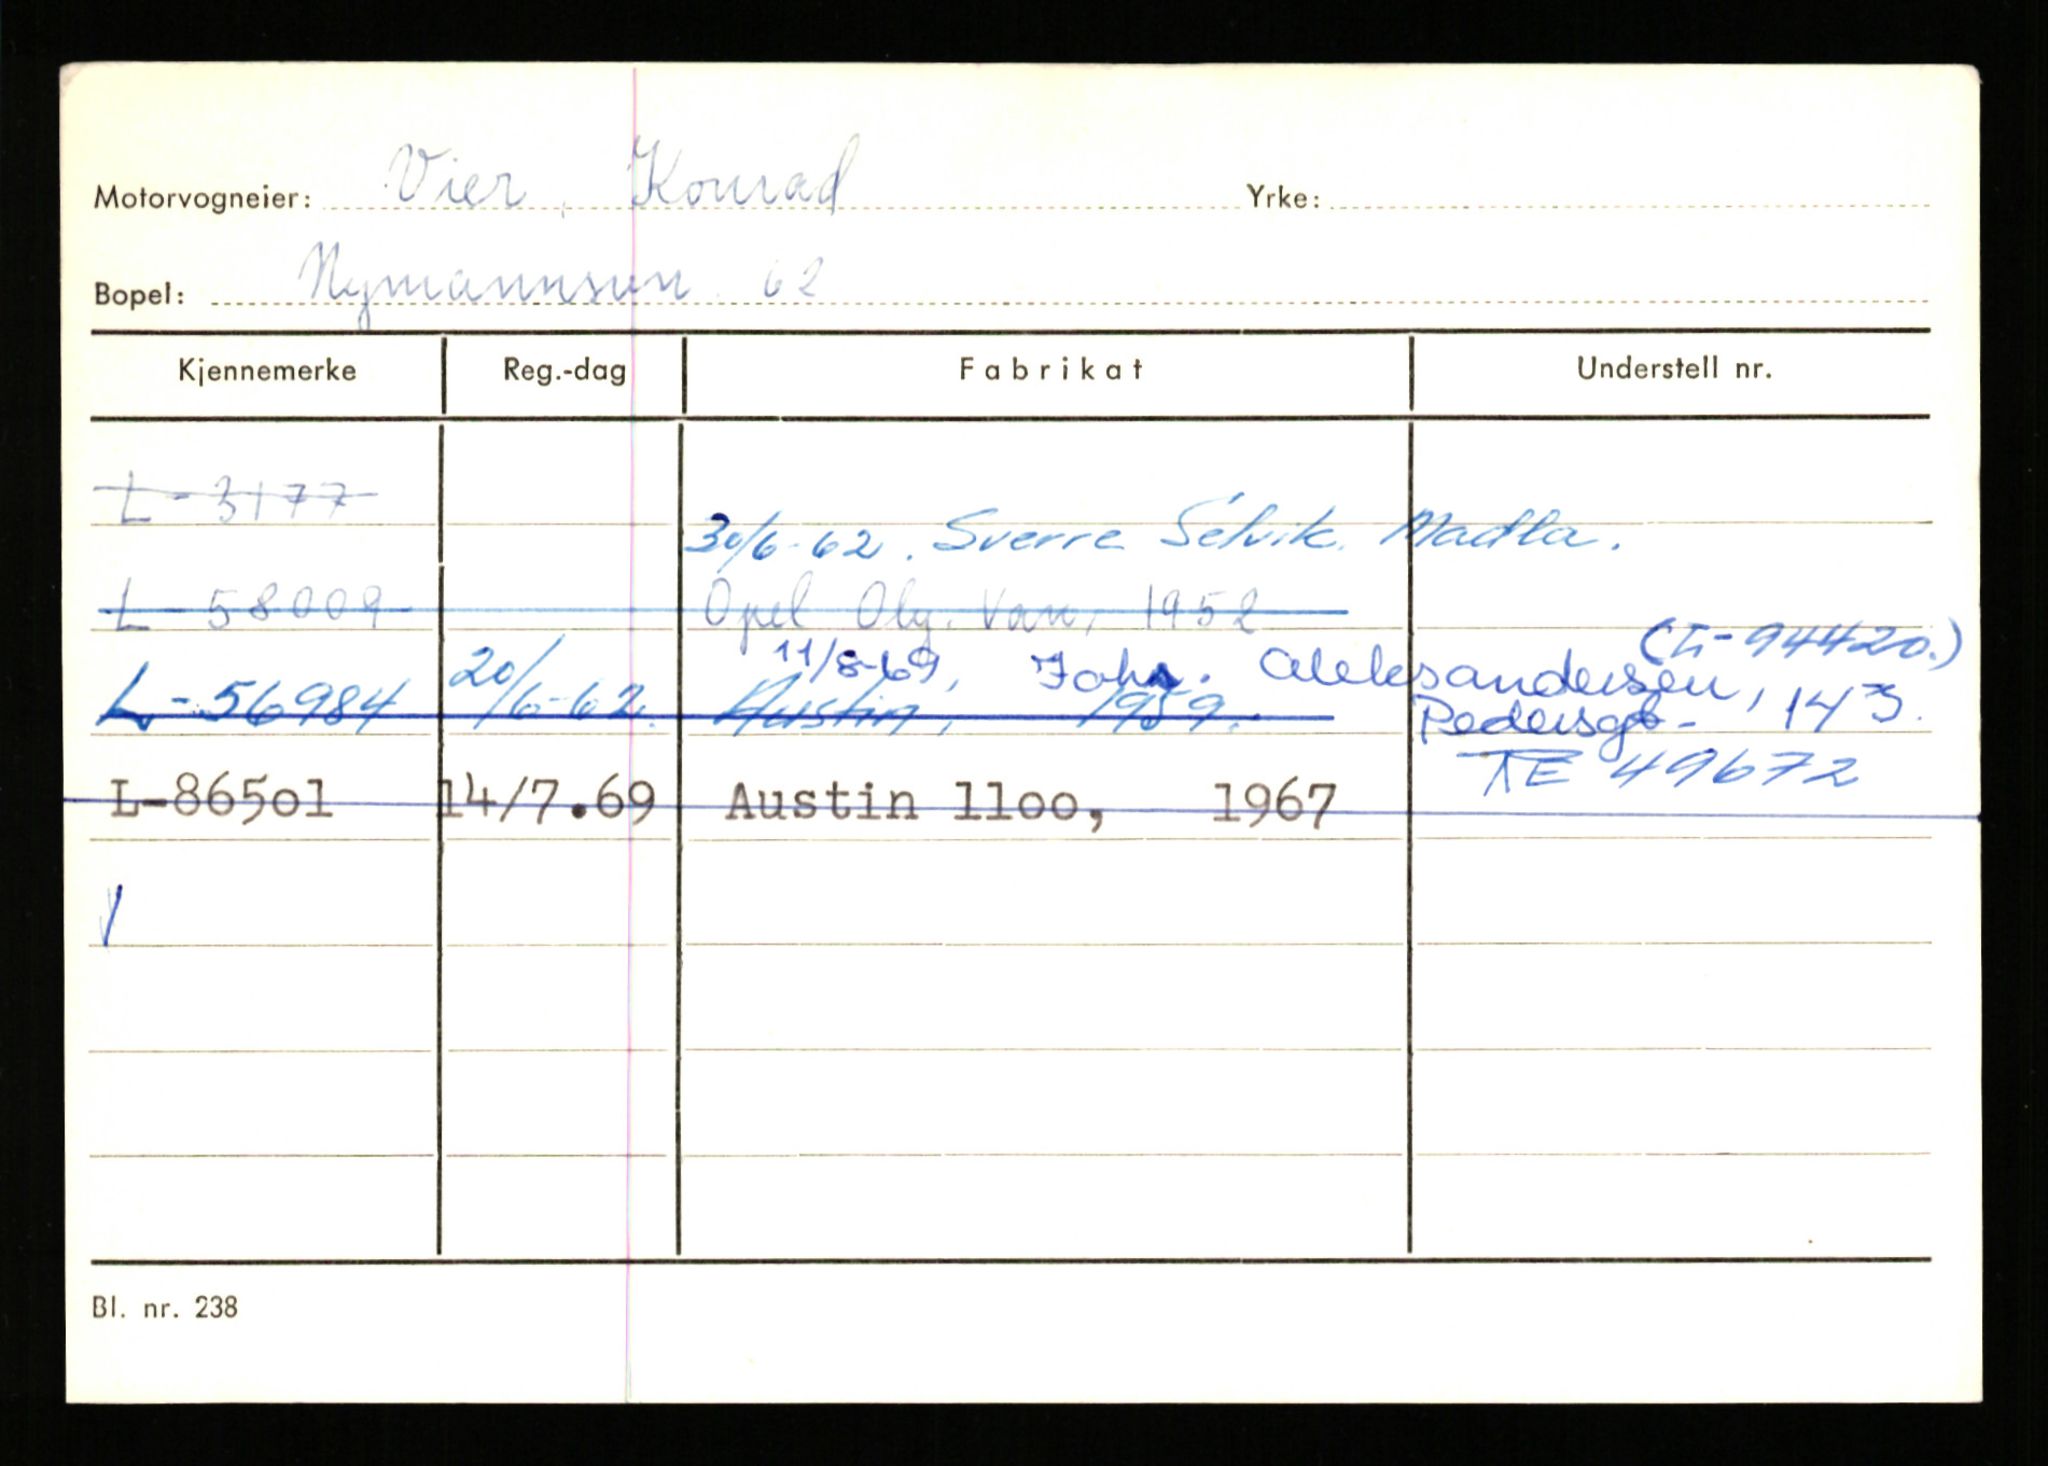 Motorvogneier: Vier, Konrad Yrke:
Bopel: Nymannsvn 62
Kjennemerke Reg.-dag Fabrikat Understell nr.
L-3177
30/6-62. Sverre Selvik. Madla.
L-58009 Opel Oly. Van, 1952
(L-94420.)
11/8-69, Joh. Aleksandersen,
L-56984 20/6-62. Austin, 1959. Pedersgt- 143.
TE 49672
L-865o1 14/7.69 Austin 11oo, 1967
Bl. nr. 238